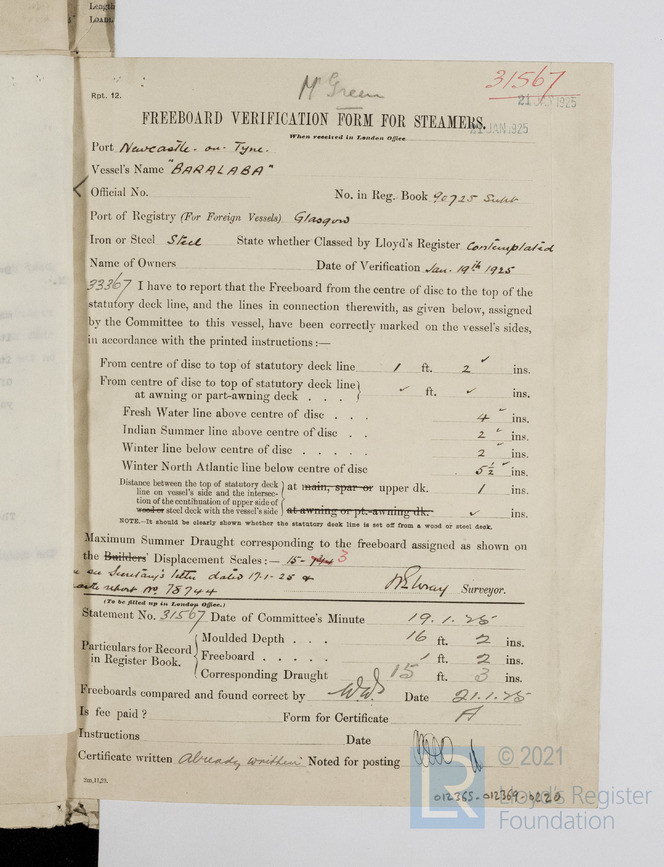 Length
LOADL
Mr Green
31567
Rpt. 12.
21 JAN 1925
FREEBOARD VERIFICATION FORM FOR STEAMERS.
21 JAN 1925
When received in London Office
Port Newcastle-on-Tyne.
Vessel's Name "BARALABA"
Official No. No. in Reg. Book 90725 Supp
Port of Registry (For Foreign Vessels) Glasgow
Iron or Steel Steel State whether Classed by Lloyd's Register Contemplated
Name of Owners Date of Verification Jan. 19th 1925
33367 I have to report that the Freeboard from the centre of disc to the top of the
statutory deck line, and the lines in connection therewith, as given below, assigned
by the Committee to this vessel, have been correctly marked on the vessel's sides,
in accordance with the printed instructions:—
From centre of disc to top of statutory deck line 1 ft. 2 ins.
From centre of disc to top of statutory deck line
at awning or part-awning deck . . . ✓ ft. ✓ ins.
Fresh Water line above centre of disc . . . 4 ins.
Indian Summer line above centre of disc . . 2 ins.
Winter line below centre of disc . . . . . 2 ins.
Winter North Atlantic line below centre of disc 5½ ins.
Distance between the top of statutory deck
line on vessel's side and the intersec-
tion of the continuation of upper side of
wood or steel deck with the vessel's side
at main, spar or upper dk. 1 ins.
at awning or pt.-awning dk. ✓ ins.
NOTE.—It should be clearly shown whether the statutory deck line is set off from a wood or steel deck.
Maximum Summer Draught corresponding to the freeboard assigned as shown on
the Builders' Displacement Scales:— 15- 3
see Secretary's letter dated 17-1-25 &
report No 78744 Surveyor.
(To be filled up in London Office.)
Statement No. 31567 Date of Committee's Minute 19.1.25
Particulars for Record
in Register Book.
Moulded Depth . . . 16 ft. 2 ins.
Freeboard . . . . . 1 ft. 2 ins.
Corresponding Draught 15 ft. 3 ins.
Freeboards compared and found correct by Date 21.1.25
Is fee paid? Form for Certificate A
Instructions Date
Certificate written Already written Noted for posting
2m,11,23.
LR
© 2021
Lloyd's Register
Foundation
012365-012369-0220